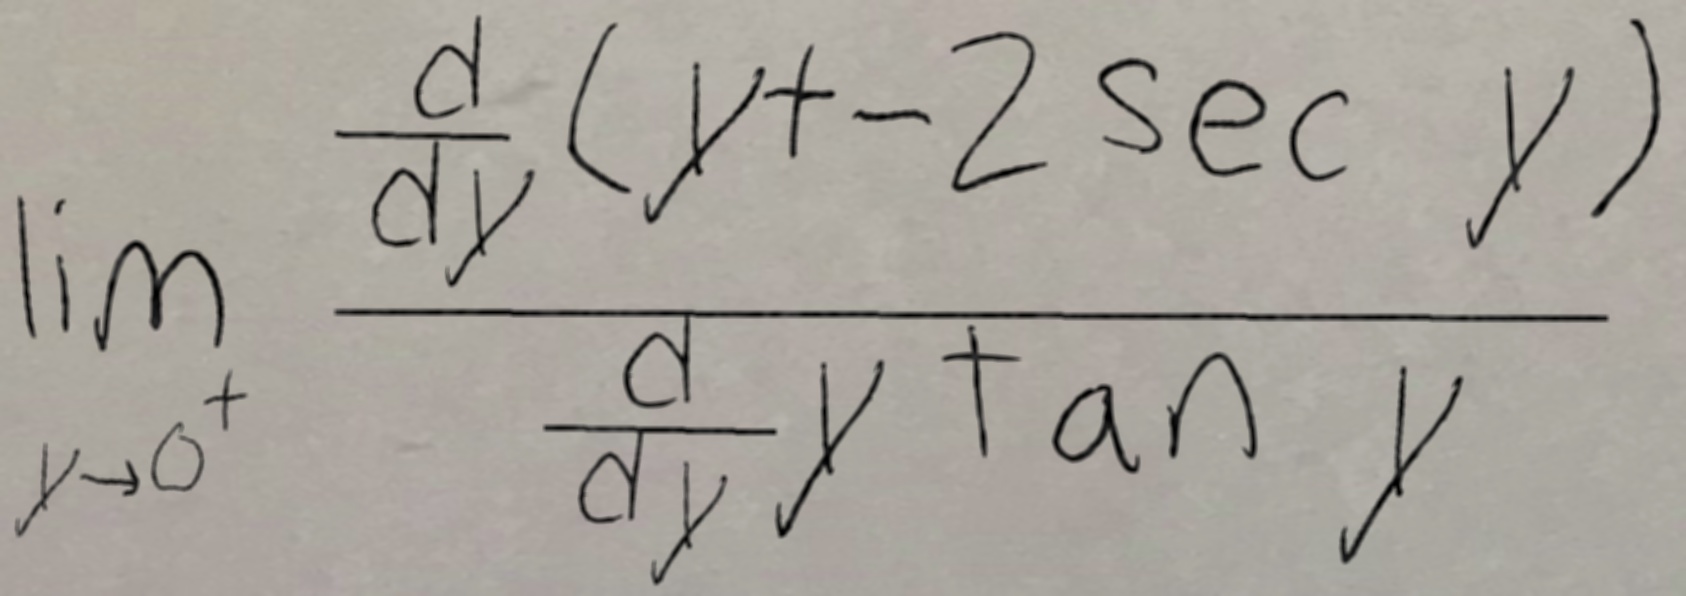 \lim_{y \to 0^+} \frac{\frac{d}{dy}(y+-2\sec y)}{\frac{d}{dy} y \tan y}